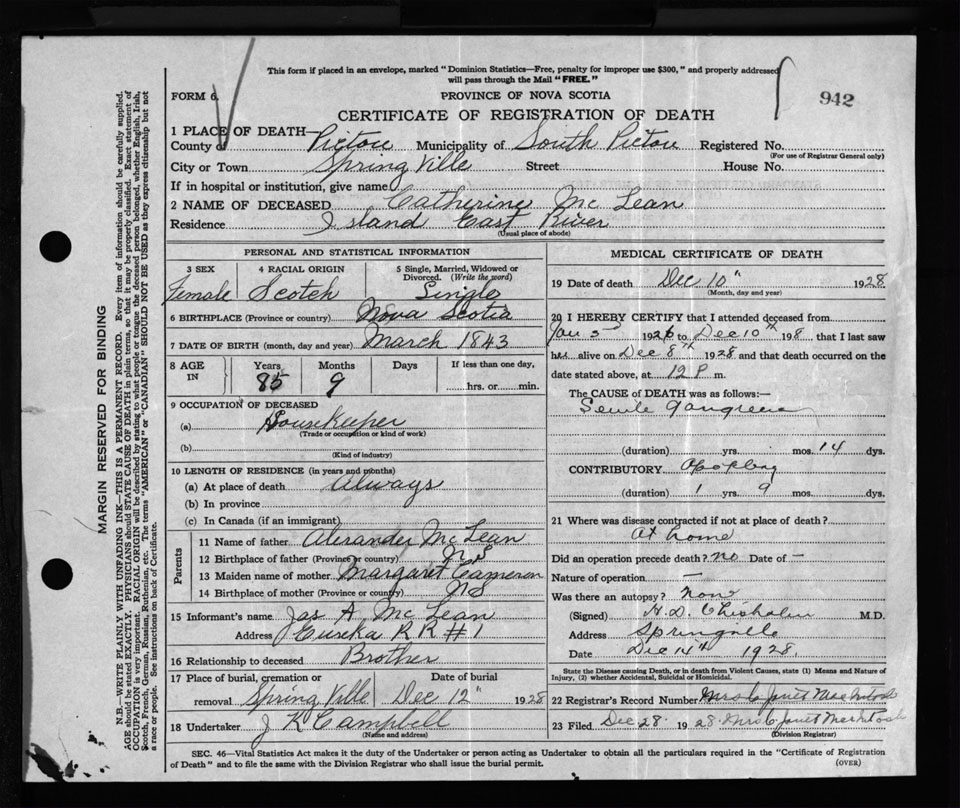 This form if placed in an envelope, marked "Dominion Statistics—Free, penalty for improper use $300," and properly addressed
will pass through the Mail "FREE."
FORM 6.
PROVINCE OF NOVA SCOTIA
942
CERTIFICATE OF REGISTRATION OF DEATH
1 PLACE OF DEATH—
County of Pictou Municipality of South Pictou Registered No.
(For use of Registrar General only)
City or Town Spring Ville Street House No.
If in hospital or institution, give name
2 NAME OF DECEASED Catherine Mc Lean
Residence Island East River
(Usual place of abode)
PERSONAL AND STATISTICAL INFORMATION
3 SEX 4 RACIAL ORIGIN 5 Single, Married, Widowed or Divorced. (Write the word)
Female Scotch Single
6 BIRTHPLACE (Province or country) Nova Scotia
7 DATE OF BIRTH (month, day and year) March 1843
8 AGE IN Years Months Days If less than one day,
85 9 hrs. or min.
9 OCCUPATION OF DECEASED
(a) Housekeeper
(Trade or occupation or kind of work)
(b)
(Kind of industry)
10 LENGTH OF RESIDENCE (in years and months)
(a) At place of death Always
(b) In province
(c) In Canada (if an immigrant)
Parents
11 Name of father Alexander Mc Lean
12 Birthplace of father (Province or country) N S
13 Maiden name of mother Margaret Cameron
14 Birthplace of mother (Province or country) N S
15 Informant's name Jas A Mc Lean
Address Eureka R R # 1
16 Relationship to deceased Brother
17 Place of burial, cremation or removal Date of burial
Spring Ville Dec 12" 1928
18 Undertaker J K Campbell
(Name and address)
MEDICAL CERTIFICATE OF DEATH
19 Date of death Dec 10" 1928
(Month, day and year)
20 I HEREBY CERTIFY that I attended deceased from
Jan 5 1926 to Dec 10th 198, that I last saw
her alive on Dec 8th 1928 and that death occurred on the
date stated above, at 12 P m.
The CAUSE OF DEATH was as follows:—
Senile gangrene
(duration) yrs. mos. 14 dys.
CONTRIBUTORY Apoplexy
(duration) 1 yrs. 9 mos. dys.
21 Where was disease contracted if not at place of death?
At home
Did an operation precede death? no Date of —
Nature of operation —
Was there an autopsy? None
(Signed) H. D. Chisholm M.D.
Address Springville
Date Dec 14th 1928
State the Disease causing Death, or in Death from Violent Causes, state (1) Means and Nature of
Injury, (2) whether Accidental, Suicidal or Homicidal.
22 Registrar's Record Number Mrs C Janet MacKintosh
23 Filed Dec 28 1928 Mrs C Janet MacKintosh
(Division Registrar)
SEC. 46—Vital Statistics Act makes it the duty of the Undertaker or person acting as Undertaker to obtain all the particulars required in the "Certificate of Registration
of Death" and to file the same with the Division Registrar who shall issue the burial permit. (OVER)
MARGIN RESERVED FOR BINDING
N.B.—WRITE PLAINLY WITH UNFADING INK—THIS IS A PERMANENT RECORD. Every item of information should be carefully supplied.
AGE should be stated EXACTLY. PHYSICIANS should STATE CAUSE OF DEATH in plain terms, so that it may be properly classified. Exact statement of
OCCUPATION is very important. RACIAL ORIGIN will be described by stating to what people or tongue the deceased person belonged, whether English, Irish,
Scotch, French, German, Russian, Ruthenian, etc. The terms "AMERICAN" or "CANADIAN" SHOULD NOT BE USED as they express citizenship but not
a race or people. See instructions on back of Certificate.